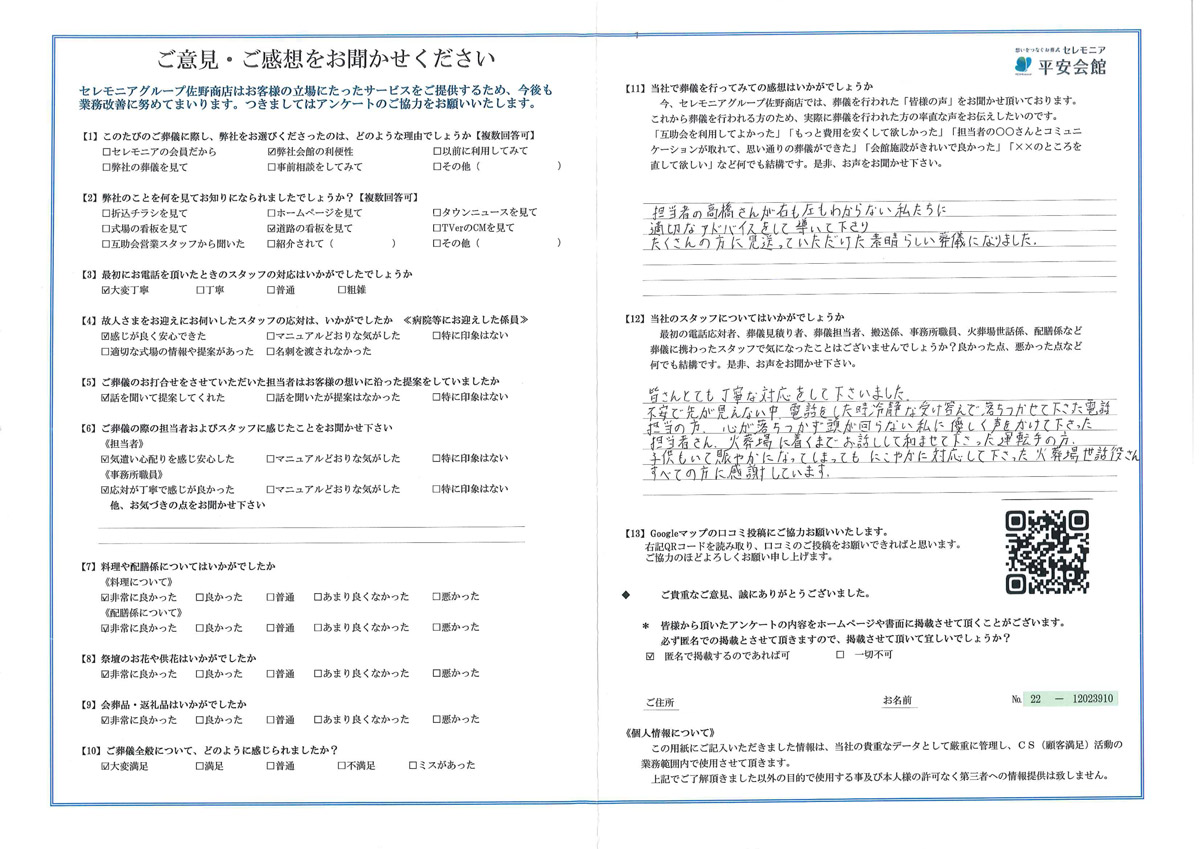 ご意見・ご感想をお聞かせください
セレモニアグループ佐野商店はお客様の立場にたったサービスをご提供するため、今後も
業務改善に努めてまいります。つきましてはアンケートのご協力をお願いいたします。
【1】このたびのご葬儀に際し、弊社をお選びくださったのは、どのような理由でしょうか【複数回答可】
☐セレモニアの会員だから ☑弊社会館の利便性 ☐以前に利用してみて
☐弊社の葬儀を見て ☐事前相談をしてみて ☐その他（ ）
【2】弊社のことを何を見てお知りになられましたでしょうか？【複数回答可】
☐折込チラシを見て ☐ホームページを見て ☐タウンニュースを見て
☐式場の看板を見て ☑道路の看板を見て ☐TVerのCMを見て
☐互助会営業スタッフから聞いた ☐紹介されて（ ） ☐その他（ ）
【3】最初にお電話を頂いたときのスタッフの対応はいかがでしたでしょうか
☑大変丁寧 ☐丁寧 ☐普通 ☐粗雑
【4】故人さまをお迎えにお伺いしたスタッフの応対は、いかがでしたか ≪病院等にお迎えした係員≫
☑感じが良く安心できた ☐マニュアルどおりな気がした ☐特に印象はない
☐適切な式場の情報や提案があった ☐名刺を渡されなかった
【5】ご葬儀のお打合せをさせていただいた担当者はお客様の想いに沿った提案をしていましたか
☑話を聞いて提案してくれた ☐話を聞いたが提案はなかった ☐特に印象はない
【6】ご葬儀の際の担当者およびスタッフに感じたことをお聞かせ下さい
《担当者》
☑気遣い心配りを感じ安心した ☐マニュアルどおりな気がした ☐特に印象はない
《事務所職員》
☑応対が丁寧で感じが良かった ☐マニュアルどおりな気がした ☐特に印象はない
他、お気づきの点をお聞かせ下さい
【7】料理や配膳係についてはいかがでしたか
《料理について》
☑非常に良かった ☐良かった ☐普通 ☐あまり良くなかった ☐悪かった
《配膳係について》
☑非常に良かった ☐良かった ☐普通 ☐あまり良くなかった ☐悪かった
【8】祭壇のお花や供花はいかがでしたか
☑非常に良かった ☐良かった ☐普通 ☐あまり良くなかった ☐悪かった
【9】会葬品・返礼品はいかがでしたか
☑非常に良かった ☐良かった ☐普通 ☐あまり良くなかった ☐悪かった
【10】ご葬儀全般について、どのように感じられましたか？
☑大変満足 ☐満足 ☐普通 ☐不満足 ☐ミスがあった
想いをつなぐお葬式 セレモニア
平安会館
【11】当社で葬儀を行ってみての感想はいかがでしょうか
今、セレモニアグループ佐野商店では、葬儀を行われた「皆様の声」をお聞かせ頂いております。
これから葬儀を行われる方のため、実際に葬儀を行われた方の率直な声をお伝えしたいのです。
「互助会を利用してよかった」「もっと費用を安くして欲しかった」「担当者の〇〇さんとコミュニ
ケーションが取れて、思い通りの葬儀ができた」「会館施設がきれいで良かった」「××のところを
直して欲しい」など何でも結構です。是非、お声をお聞かせ下さい。
担当者の高橋さんが右も左もわからない私たちに
適切なアドバイスをして導いて下さり
たくさんの方に見送っていただけた素晴らしい葬儀になりました.
【12】当社のスタッフについてはいかがでしょうか
最初の電話応対者、葬儀見積り者、葬儀担当者、搬送係、事務所職員、火葬場世話係、配膳係など
葬儀に携わったスタッフで気になったことはございませんでしょうか？良かった点、悪かった点など
何でも結構です。是非、お声をお聞かせ下さい。
皆さんとても丁寧な対応をして下さいました.
不安で先が見えない中、電話をした時冷静な受け答えで落ちつかせて下さった電話
担当の方、心が落ちつかず頭が回らない私に優しく声をかけて下さった
担当者さん、火葬場に着くまでお話しして和ませて下さった運転手の方、
子供もいて賑やかになってしまってもにこやかに対応して下さった火葬場世話役さん
すべての方に感謝しています.
【13】Googleマップの口コミ投稿にご協力お願いいたします。
右記QRコードを読み取り、口コミのご投稿をお願いできればと思います。
ご協力のほどよろしくお願い申し上げます。
◆ ご貴重なご意見、誠にありがとうございました。
＊ 皆様から頂いたアンケートの内容をホームページや書面に掲載させて頂くことがございます。
必ず匿名での掲載とさせて頂きますので、掲載させて頂いて宜しいでしょうか？
☑ 匿名で掲載するのであれば可 ☐ 一切不可
ご住所 お名前 №22 － 12023910
《個人情報について》
この用紙にご記入いただきました情報は、当社の貴重なデータとして厳重に管理し、ＣＳ（顧客満足）活動の
業務範囲内で使用させて頂きます。
上記でご了解頂きました以外の目的で使用する事及び本人様の許可なく第三者への情報提供は致しません。